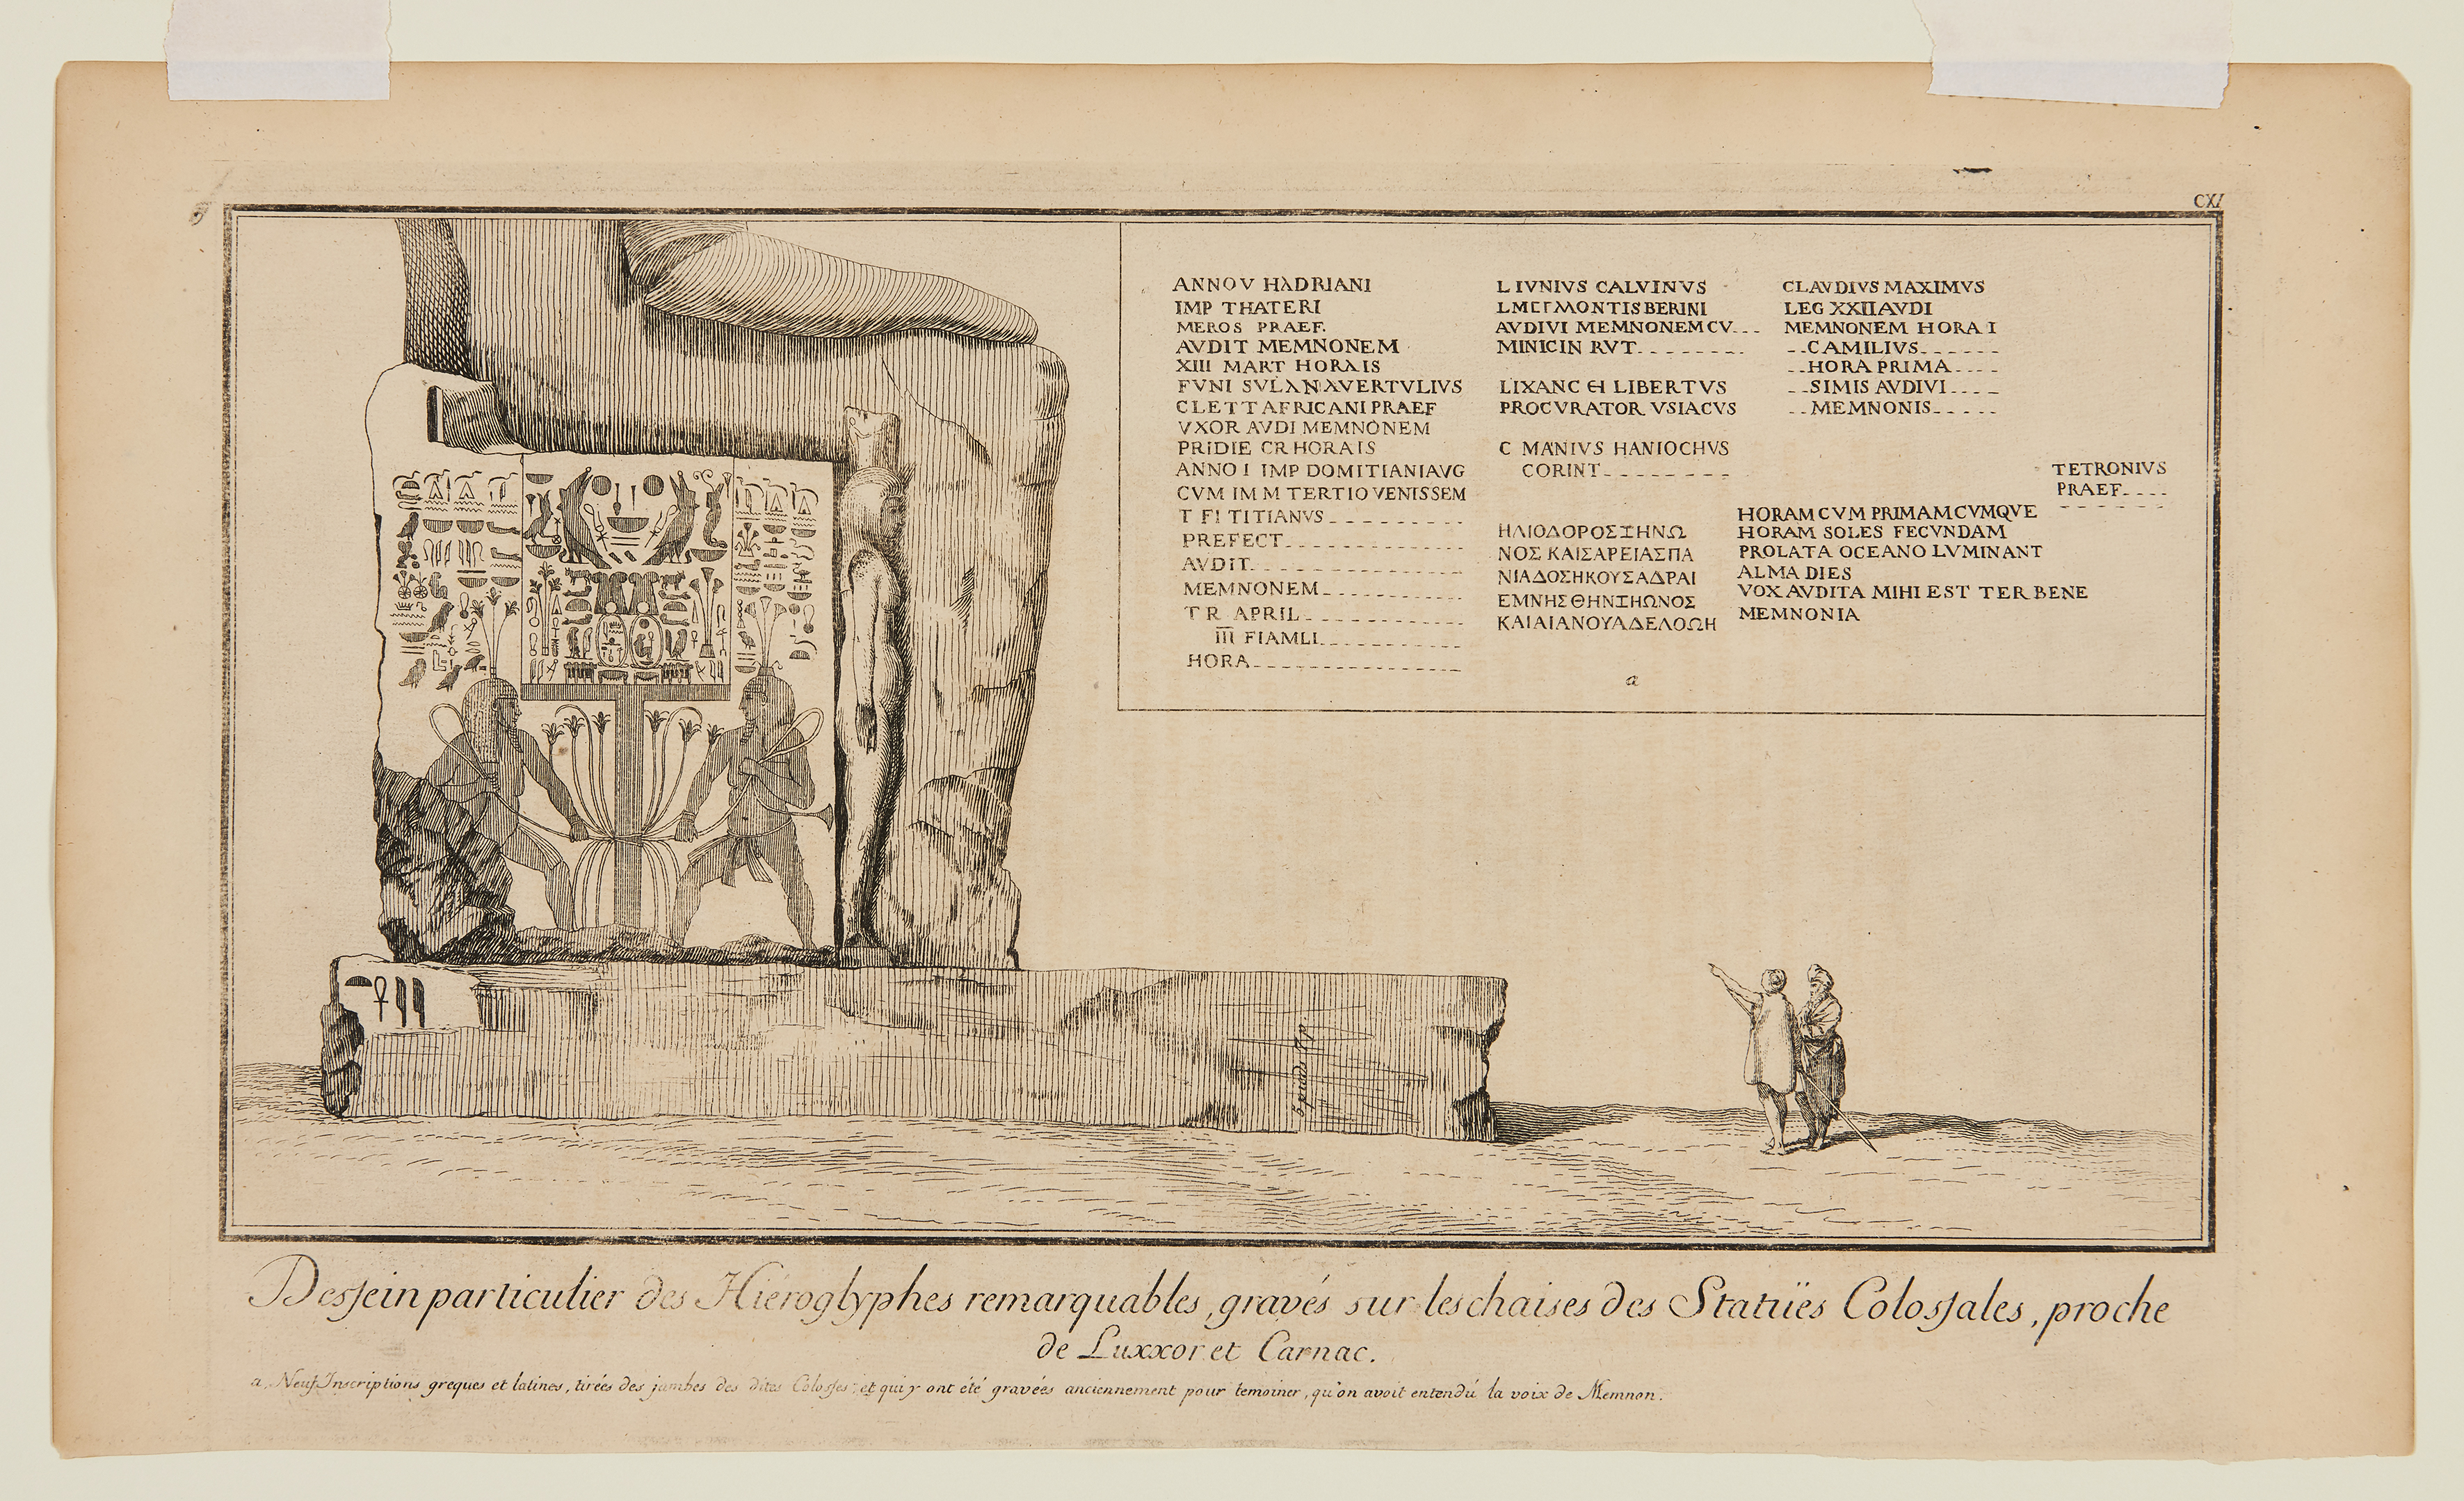 CXI
ANNO V HADRIANI
IMP THATERI
MEROS PRAEF.
AVDIT MEMNONEM
XIII MART HORAIS
FVNI SVLANAVERTVLIVS
CLETT AFRICANI PRAEF
VXOR AVDI MEMNONEM
PRIDIE CR HORAIS
ANNO I IMP DOMITIANI AVG
CVM IM M TERTIO VENISSEM
T FI TITIANVS
PREFECT
AVDIT
MEMNONEM
T R APRIL
III FIAMLI
HORA
L IVNIVS CALVINVS
MONTIS BERINI
AVDIVI MEMNONEM CV
MINICIN RVT
LIXANC LIBERTVS
PROCVRATOR VSIACVS
C MANIVS HANIOCHVS
CORINT
ΗΛΙΟΔΟΡΟΣΞΗΝΩ
ΝΟΣ ΚΑΙΣΑΡΕΙΑΣΠΑ
ΝΙΑΔΟΣΗΚΟΥΣΑΔΡΑΙ
ΕΜΝΗΣΘΗΝΞΗΩΝΟΣ
ΚΑΙΑΙΑΝΟΥΑΔΕΛΟΩΗ
CLAVDIVS MAXIMVS
LEG XXII AVDI
MEMNONEM HORA I
CAMILIVS
HORA PRIMA
SIMIS AVDIVI
MEMNONIS
TETRONIVS
PRAEF
HORAM CVM PRIMAM CVMQVE
HORAM SOLES FECVNDAM
PROLATA OCEANO LVMINANT
ALMA DIES
VOX AVDITA MIHI EST TER BENE
MEMNONIA
a
Dessein particulier des Hiéroglyphes remarquables, gravés sur les chaises des Statuës Colossales, proche
de Luxxor et Carnac.
a. Neuf Inscriptions greques et latines, tirées des jambes des dites Colosses; et qui y ont été gravées anciennement pour temoiner, qu'on avoit entendú la voix de Memnon.